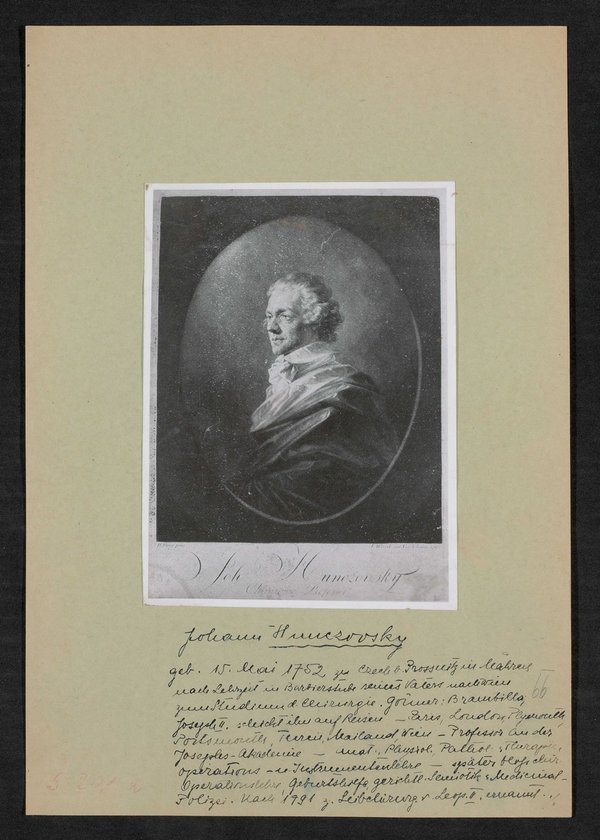 Joh Hunczovsky
Johann Hunczovsky
geb. 15. Mai 1752 zu Czech b Prossnitz in Mähren
nach Lehrzeit in Barbierstube seines Vaters nach Wien
zum Studium d Chirurgie. Gönner: Brambilla,
Joseph II. schickt ihn auf Reisen – Paris, London, Plymouth
66
Portsmouth, Turin, Mailand Wien – Professor an der
Josephs-Akademie – anat., Physiol. Pathol. Therapie,
operations – u Instrumentenlehre – später bloss
Operationslehre Geburtshilfe gerichtl. Semiotik Medicinal-
Polizei. Nach 1791 z. Leibchirurg Leop. II. ernannt.